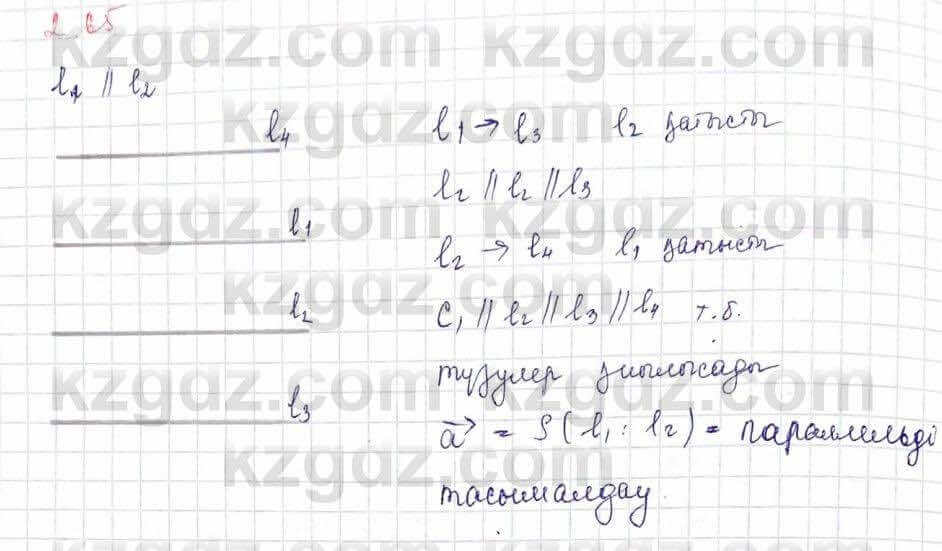 2.65
l₁ // l₂
l₄
l₁
l₂
l₃
l₁ → l₃ l₂ қатысты
l₂ // l₂ // l₃
l₂ → l₄ l₁ қатысты
C₁ // l₂ // l₃ // l₄ т.б.
түзулер қиылысады
a⃗ = S(l₁ : l₂) = параллельді
тасымалдау
kzgaz.com kzgaz.com
kzgaz.com
kzgaz.com kzgaz.com
kzgaz.com
kzgaz.com kzgaz.com
kzgaz.com